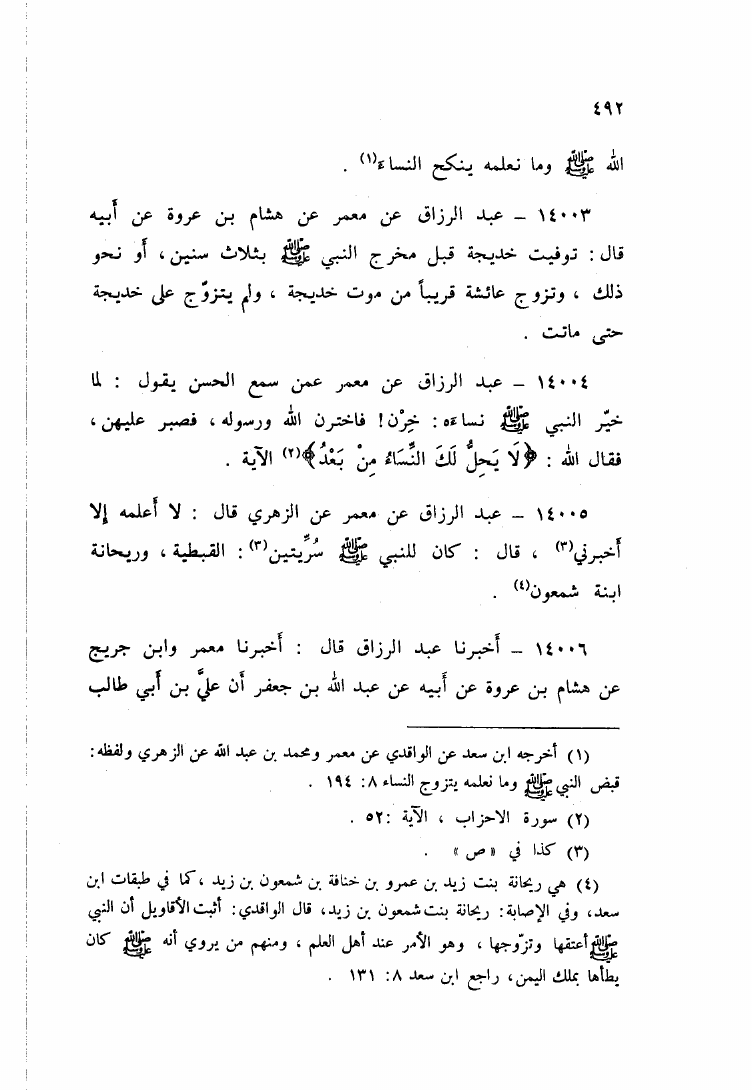 ٤٩٢
الله ﷺ وما نعلمه ينكح النساءَ(١) .
١٤٠٠٣ – عبد الرزاق عن معمر عن هشام بن عروة عن أَبيه
قال : توفيت خديجة قبل مخرج النبي ﷺ بثلاث سنين ، أَو نحو
ذلك ، وتزوج عائشة قريباً من موت خديجة ، ولم يتزوّج على خديجة
حتى ماتت .
١٤٠٠٤ – عبد الرزاق عن معمر عمن سمع الحسن يقول : لما
خيّر النبي ﷺ نساءَه : خِرْن ! فاخترن الله ورسوله ، فصبر عليهن ،
فقال الله : ﴿لَا يَحِلُّ لَكَ النِّسَاءُ مِنْ بَعْدُ﴾(٢) الآية .
١٤٠٠٥ – عبد الرزاق عن معمر عن الزهري قال : لا أَعلمه إلا
أَخبرني(٣) ، قال : كان للنبي ﷺ سُرِّيتين(٣) : القبطية ، وريحانة
ابنة شمعون(٤) .
١٤٠٠٦ – أَخبرنا عبد الرزاق قال : أَخبرنا معمر وابن جريج
عن هشام بن عروة عن أَبيه عن عبد الله بن جعفر أَن عليَّ بن أَبي طالب
(١) أخرجه ابن سعد عن الواقدي عن معمر ومحمد بن عبد الله عن الزهري ولفظه :
قبض النبي ﷺ وما نعلمه يتزوج النساء ٨ : ١٩٤ .
(٢) سورة الاحزاب ، الآية : ٥٢ .
(٣) كذا في « ص » .
(٤) هي ريحانة بنت زيد بن عمرو بن خنافة بن شمعون بن زيد ، كما في طبقات ابن
سعد، وفي الإصابة : ريحانة بنت شمعون بن زيد، قال الواقدي : أثبت الأقاويل أن النبي
ﷺ أعتقها وتزّوجها ، وهو الأمر عند أهل العلم ، ومنهم من يروي أنه ﷺ كان
يطأها بملك اليمن، راجع ابن سعد ٨ : ١٣١ .